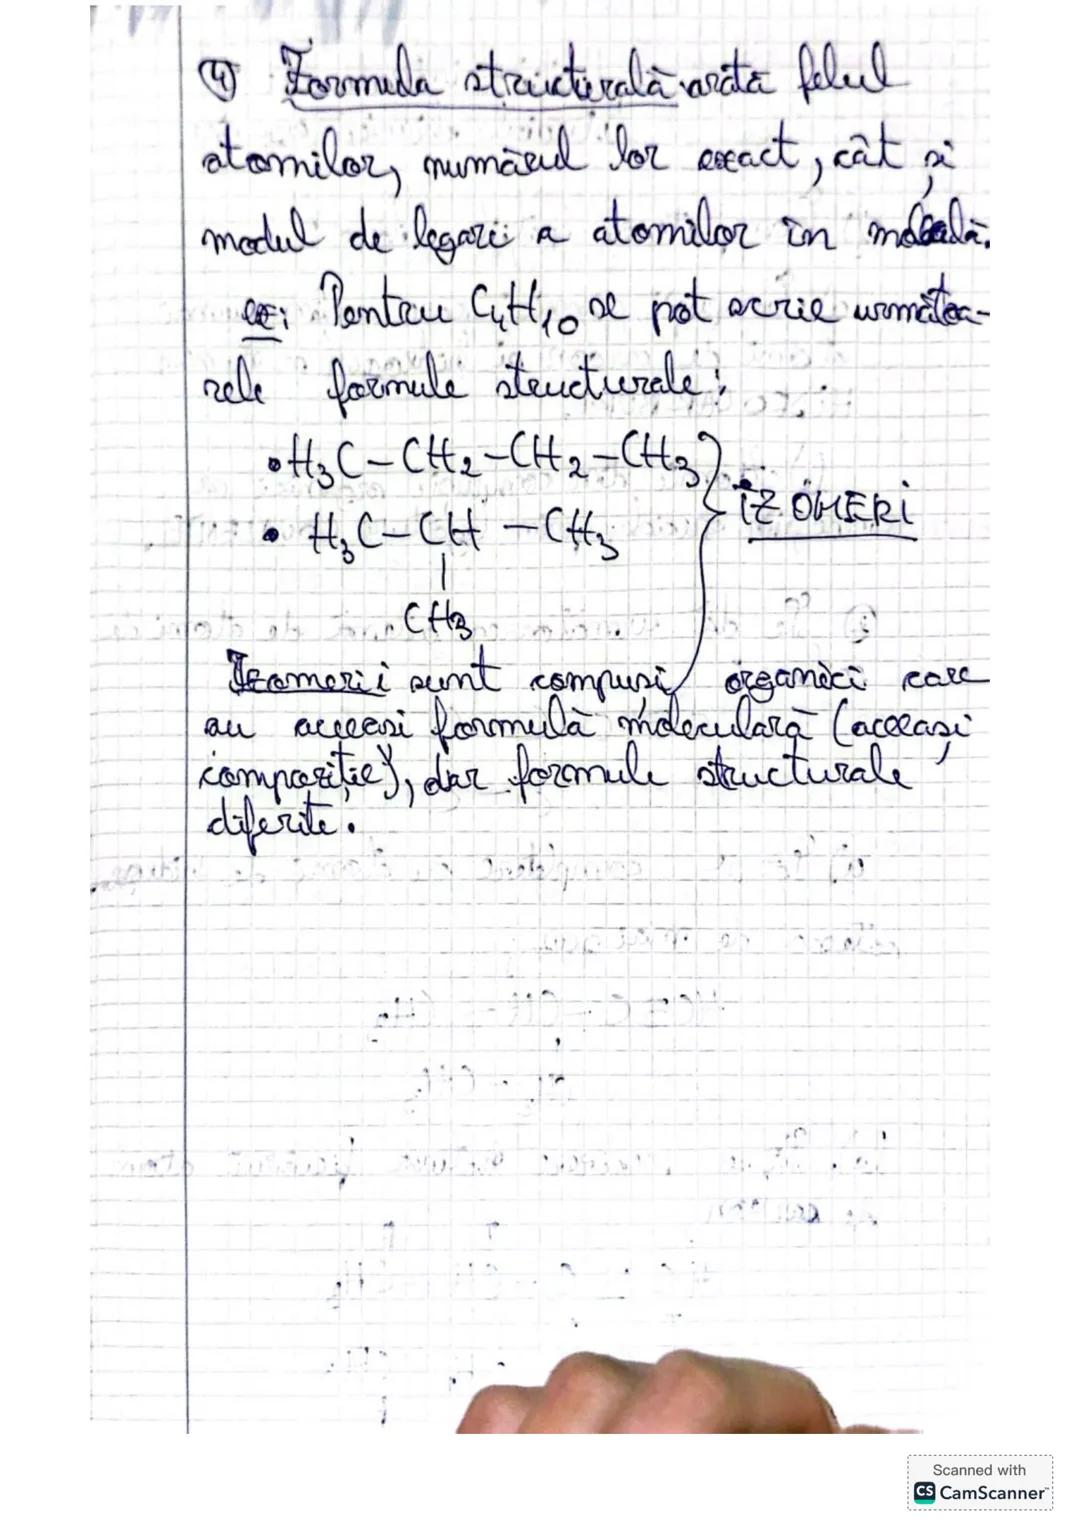 ④ Formula structurală arată felul
atomilor, numărul lor exact, cât și
modul de legare a atomilor în moleculă.
ex: Pentru C₄H₁₀ se pot scrie următoa-
rele formule structurale:
• H₃C – CH₂ – CH₂ – CH₃
IZOMERI
• H₃C – CH – CH₃
|
CH₃
Izomerii sunt compuși organici care
au aceeași formulă moleculară (aceeași
compoziție), dar formule structurale
diferite.
Scanned with
CS CamScanner